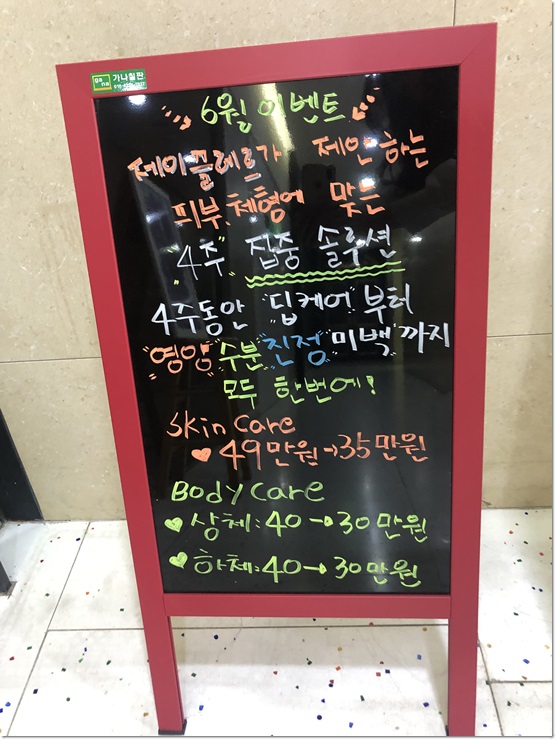 가나칠판
6월 이벤트
제이끌레르가 제안하는
피부, 체형에 맞는
"4주" 집중 솔루션
4주동안 "딥케어" 부터
"영양" "수분" "진정" "미백" 까지
모두 한번에!
Skin Care
♥ 49만원→35만원
Body Care
♥ 상체:40→30만원
♥ 하체:40→30만원